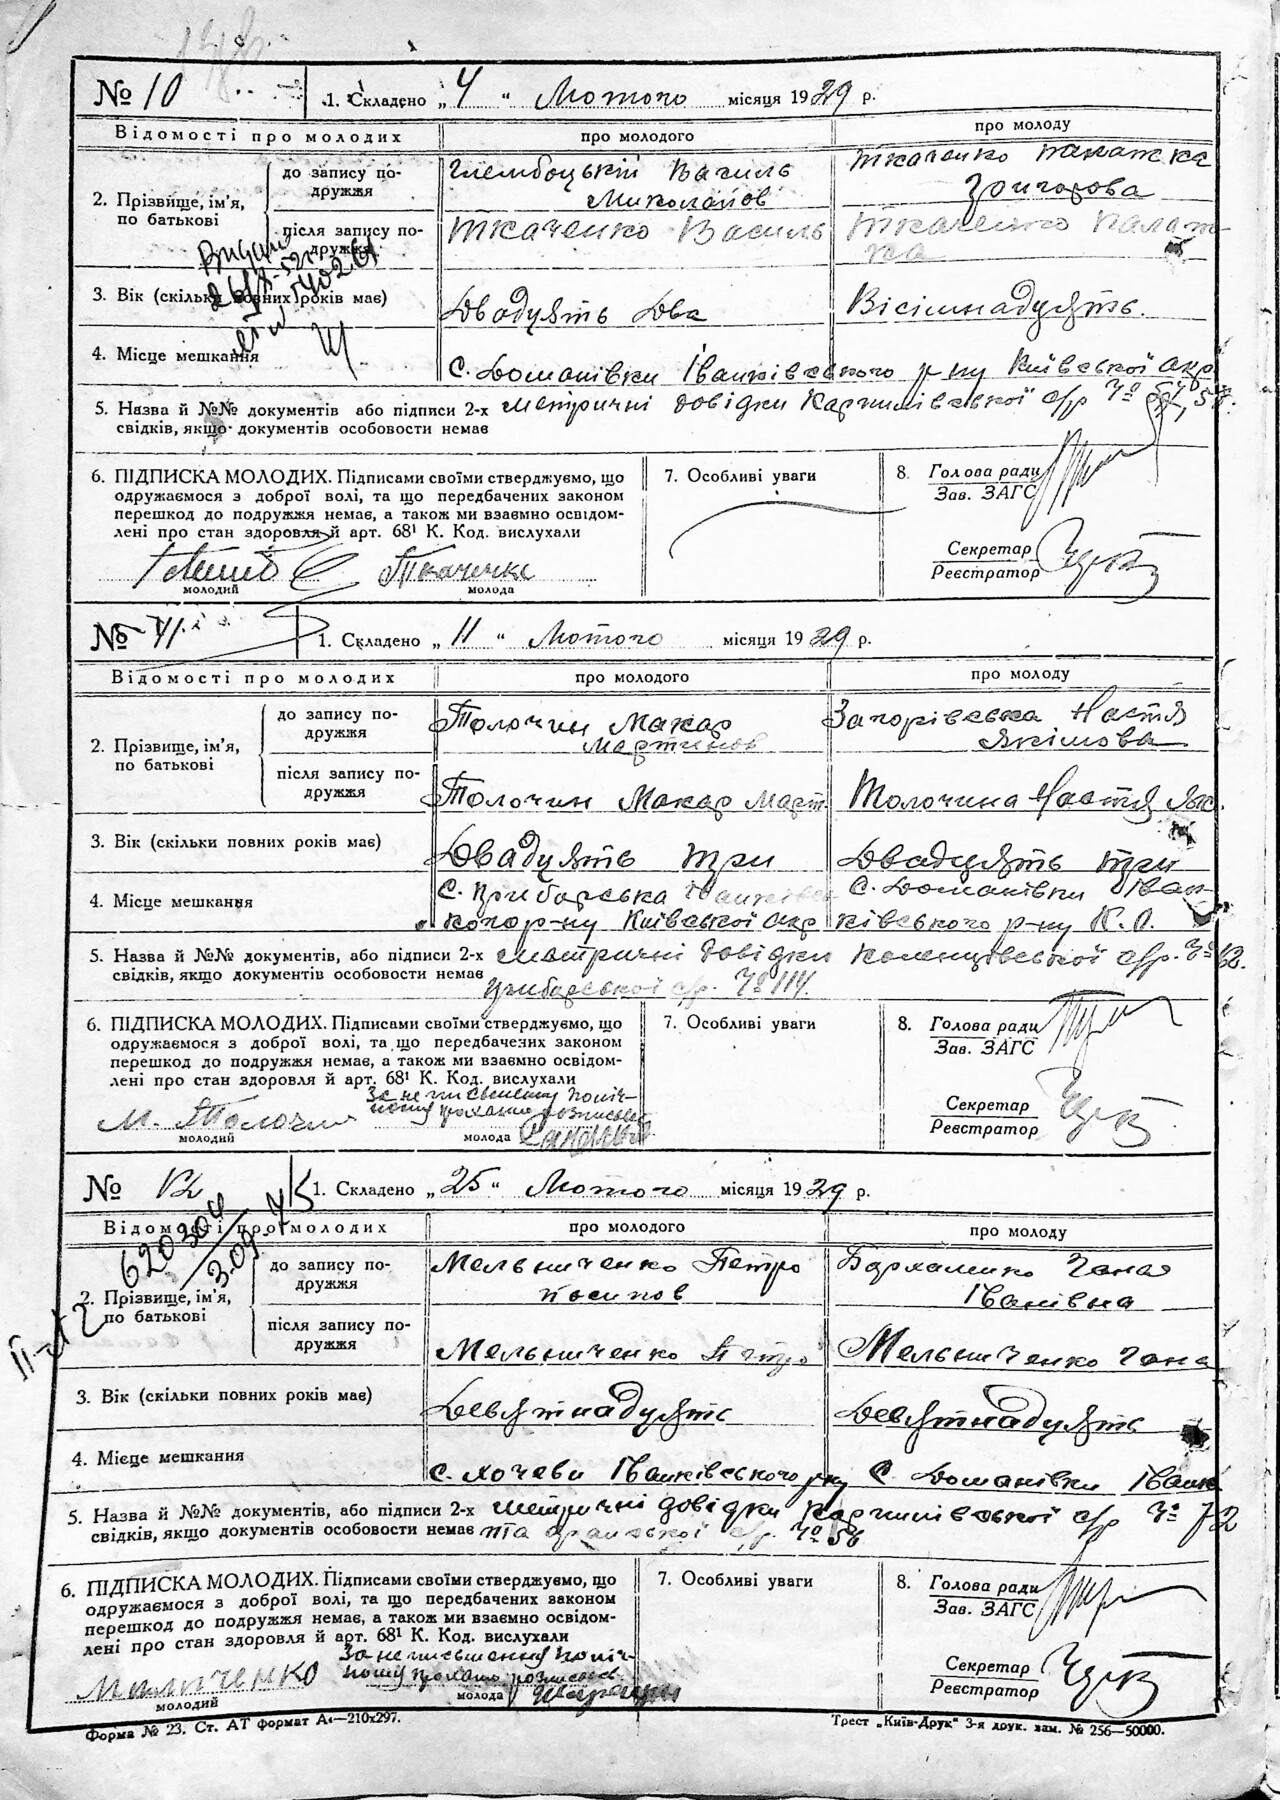 № 10 1. Складено „4 “ Лютого місяця 1929 р.
Відомості про молодих про молодого про молоду
2. Прізвище, ім'я, по батькові
до запису подружжя
Василь Миколайов
Ткаченко Григорова
після запису подружжя
Ткаченко Василь
Ткаченко Палажка
3. Вік (скільки повних років має) Двадцять два Вісімнадцять.
4. Місце мешкання с. Доманівки Іванківського р-ну Київської окр.
5. Назва й №№ документів або підписи 2-х метричні довідки с/р
свідків, якщо документів особовости немає
6. ПІДПИСКА МОЛОДИХ. Підписами своїми стверджуємо, що
одружаємося з доброї волі, та що передбачених законом
перешкод до подружжя немає, а також ми взаємно освідом-
лені про стан здоровля й арт. 68¹ К. Код. вислухали
7. Особливі уваги
8. Голова ради
Зав. ЗАГС
Секретар
Реєстратор
Ткаченко
молодий молода
№ 11. 1. Складено „11 “ Лютого місяця 1929 р.
Відомості про молодих про молодого про молоду
2. Прізвище, ім'я, по батькові
до запису подружжя
Толочин Макар Мартинов
Загорівська Настя Якімова
після запису подружжя
Толочин Макар Март.
Толочина Настя Як.
3. Вік (скільки повних років має) Двадцять три Двадцять три
4. Місце мешкання
с. Прибарська Іванківського р-ну Київської окр
с. Доманівки Іванківського р-ну К. О.
5. Назва й №№ документів, або підписи 2-х метричні довідки Коленцівської с/р. № 62.
свідків, якщо документів особовости немає Прибарської с/р. № 114.
6. ПІДПИСКА МОЛОДИХ. Підписами своїми стверджуємо, що
одружаємося з доброї волі, та що передбачених законом
перешкод до подружжя немає, а також ми взаємно освідом-
лені про стан здоровля й арт. 68¹ К. Код. вислухали
7. Особливі уваги
8. Голова ради
Зав. ЗАГС
Секретар
Реєстратор
За не письменну
М. Толочин
молодий молода
№ 12 1. Складено „25“ Лютого місяця 1929 р.
620304
3.09.75
Відомості про молодих про молодого про молоду
2. Прізвище, ім'я, по батькові
до запису подружжя
Мельниченко Петро Йосипов
Ганна Іванівна
після запису подружжя
Мельниченко Петро
Мельниченко Гана
3. Вік (скільки повних років має) Девятнадцять Девятнадцять
4. Місце мешкання с. Хочеви Іванківського р-ну С. Доманівки Іванк
5. Назва й №№ документів, або підписи 2-х метричні довідки с/р № 72
свідків, якщо документів особовости немає та с/р. № 56
6. ПІДПИСКА МОЛОДИХ. Підписами своїми стверджуємо, що
одружаємося з доброї волі, та що передбачених законом
перешкод до подружжя немає, а також ми взаємно освідом-
лені про стан здоровля й арт. 68¹ К. Код. вислухали
7. Особливі уваги
8. Голова ради
Зав. ЗАГС
Секретар
Реєстратор
За не письменну
молодий молода
Форма № 23. Ст. АТ формат А₄—210х297. Трест „Київ-Друк“ 3-я друк. зам. № 256—50000.